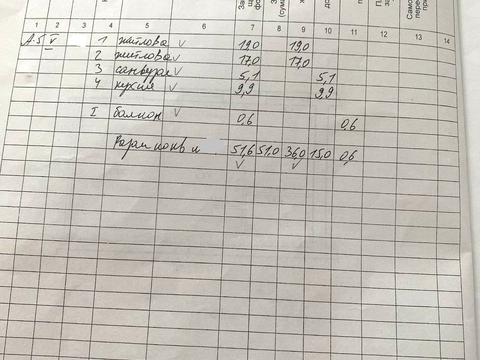 1 2 3 4 5 6 7 8 9 10 11 12 13 14
А-5 V 1 житлова v 19,0 19,0
2 житлова v 17,0 17,0
3 санвузел v 5,1 5,1
4 кухня v 9,9 9,9
I балкон v 0,6 0,6
Разом по кв 51,6 51,0 36,0 15,0 0,6
v v